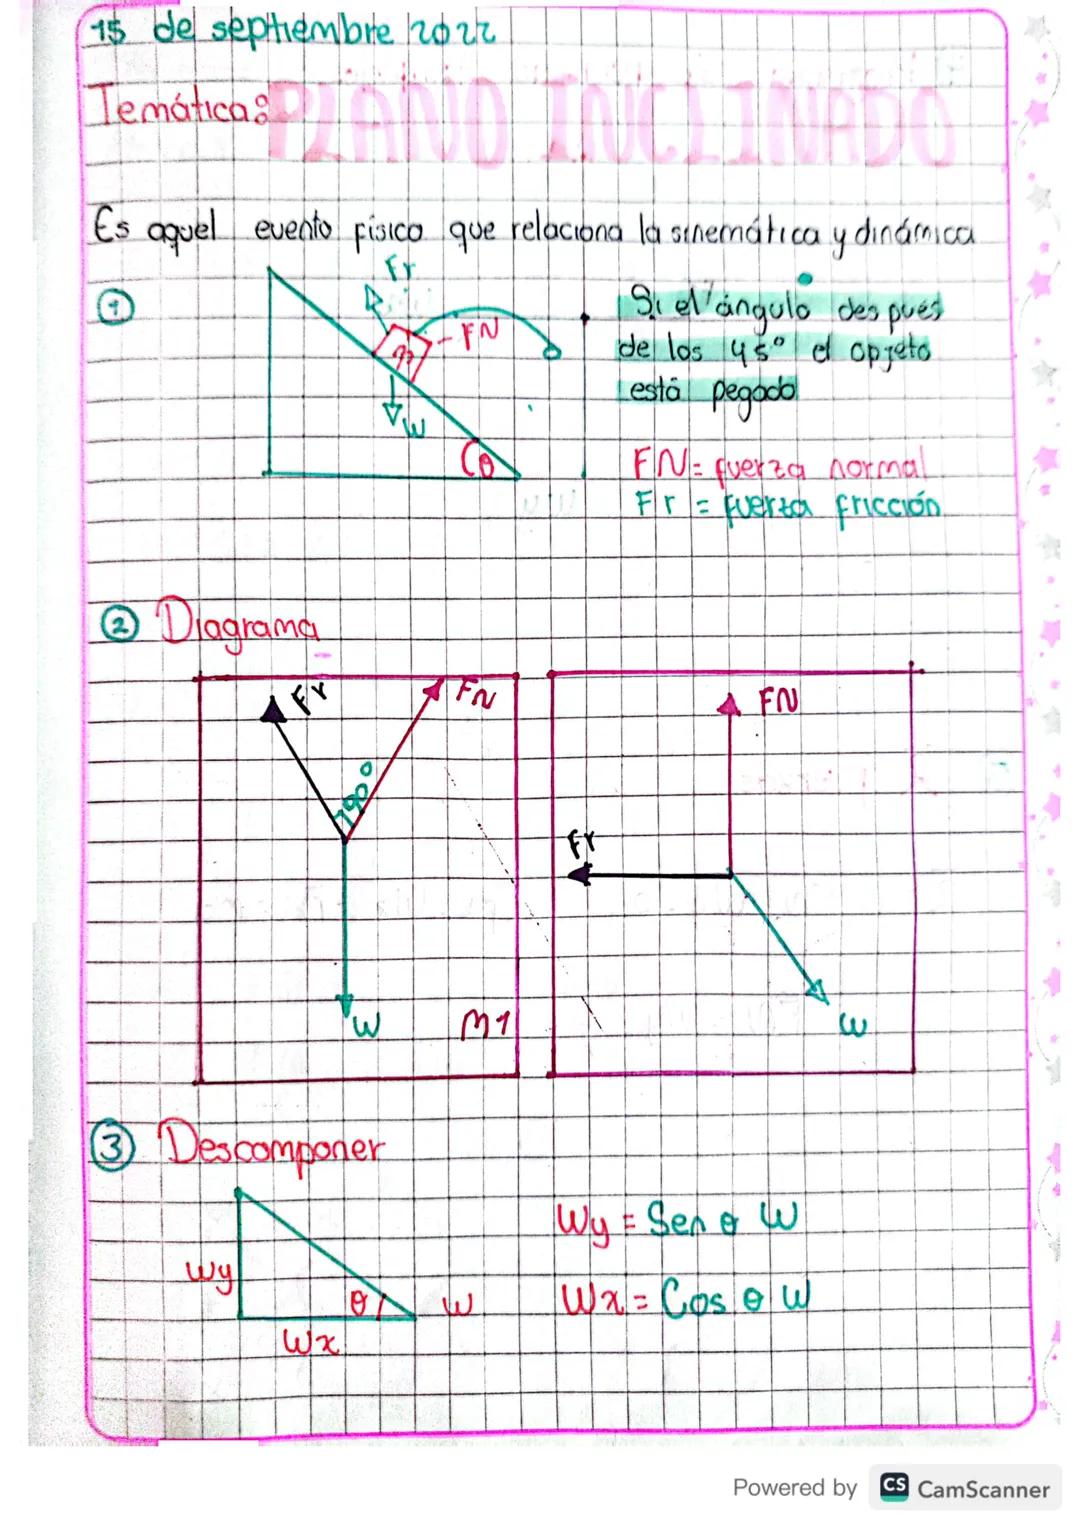 15 de septiembre 2022
Temática: PLANO INCLINADO
Es aquel evento físico que relaciona la sinemática y dinámica
1
Fr
m
FN
W
θ
Si el ángulo despues
de los 45° el opjeto
está pegado
FN = fuerza normal
Fr = fuerza fricción
2 Diagrama
Fr
FN
90°
W
M1
FN
Fr
W
3 Descomponer
Wy
θ
W
Wx
Wy = Sen θ W
Wx = Cos θ W
Powered by CS CamScanner